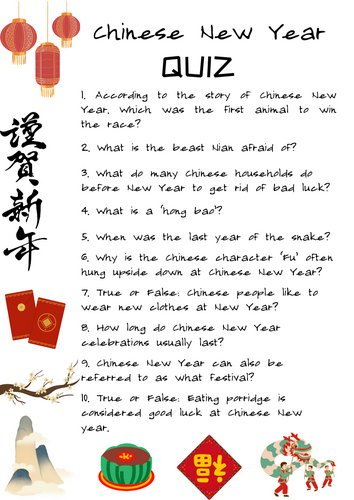 Chinese New Year
QUIZ
1. According to the story of Chinese New
Year, which was the first animal to win
the race?
2. What is the beast Nian afraid of?
3. What do many Chinese households do
before New Year to get rid of bad luck?
4. What is a 'hong bao'?
5. When was the last year of the snake?
6. Why is the Chinese character 'Fu' often
hung upside down at Chinese New Year?
7. True or False: Chinese people like to
wear new clothes at New Year?
8. How long do Chinese New Year
celebrations usually last?
9. Chinese New Year can also be
referred to as what festival?
10. True or False: Eating porridge is
considered good luck at Chinese New
year.
謹賀新年
福